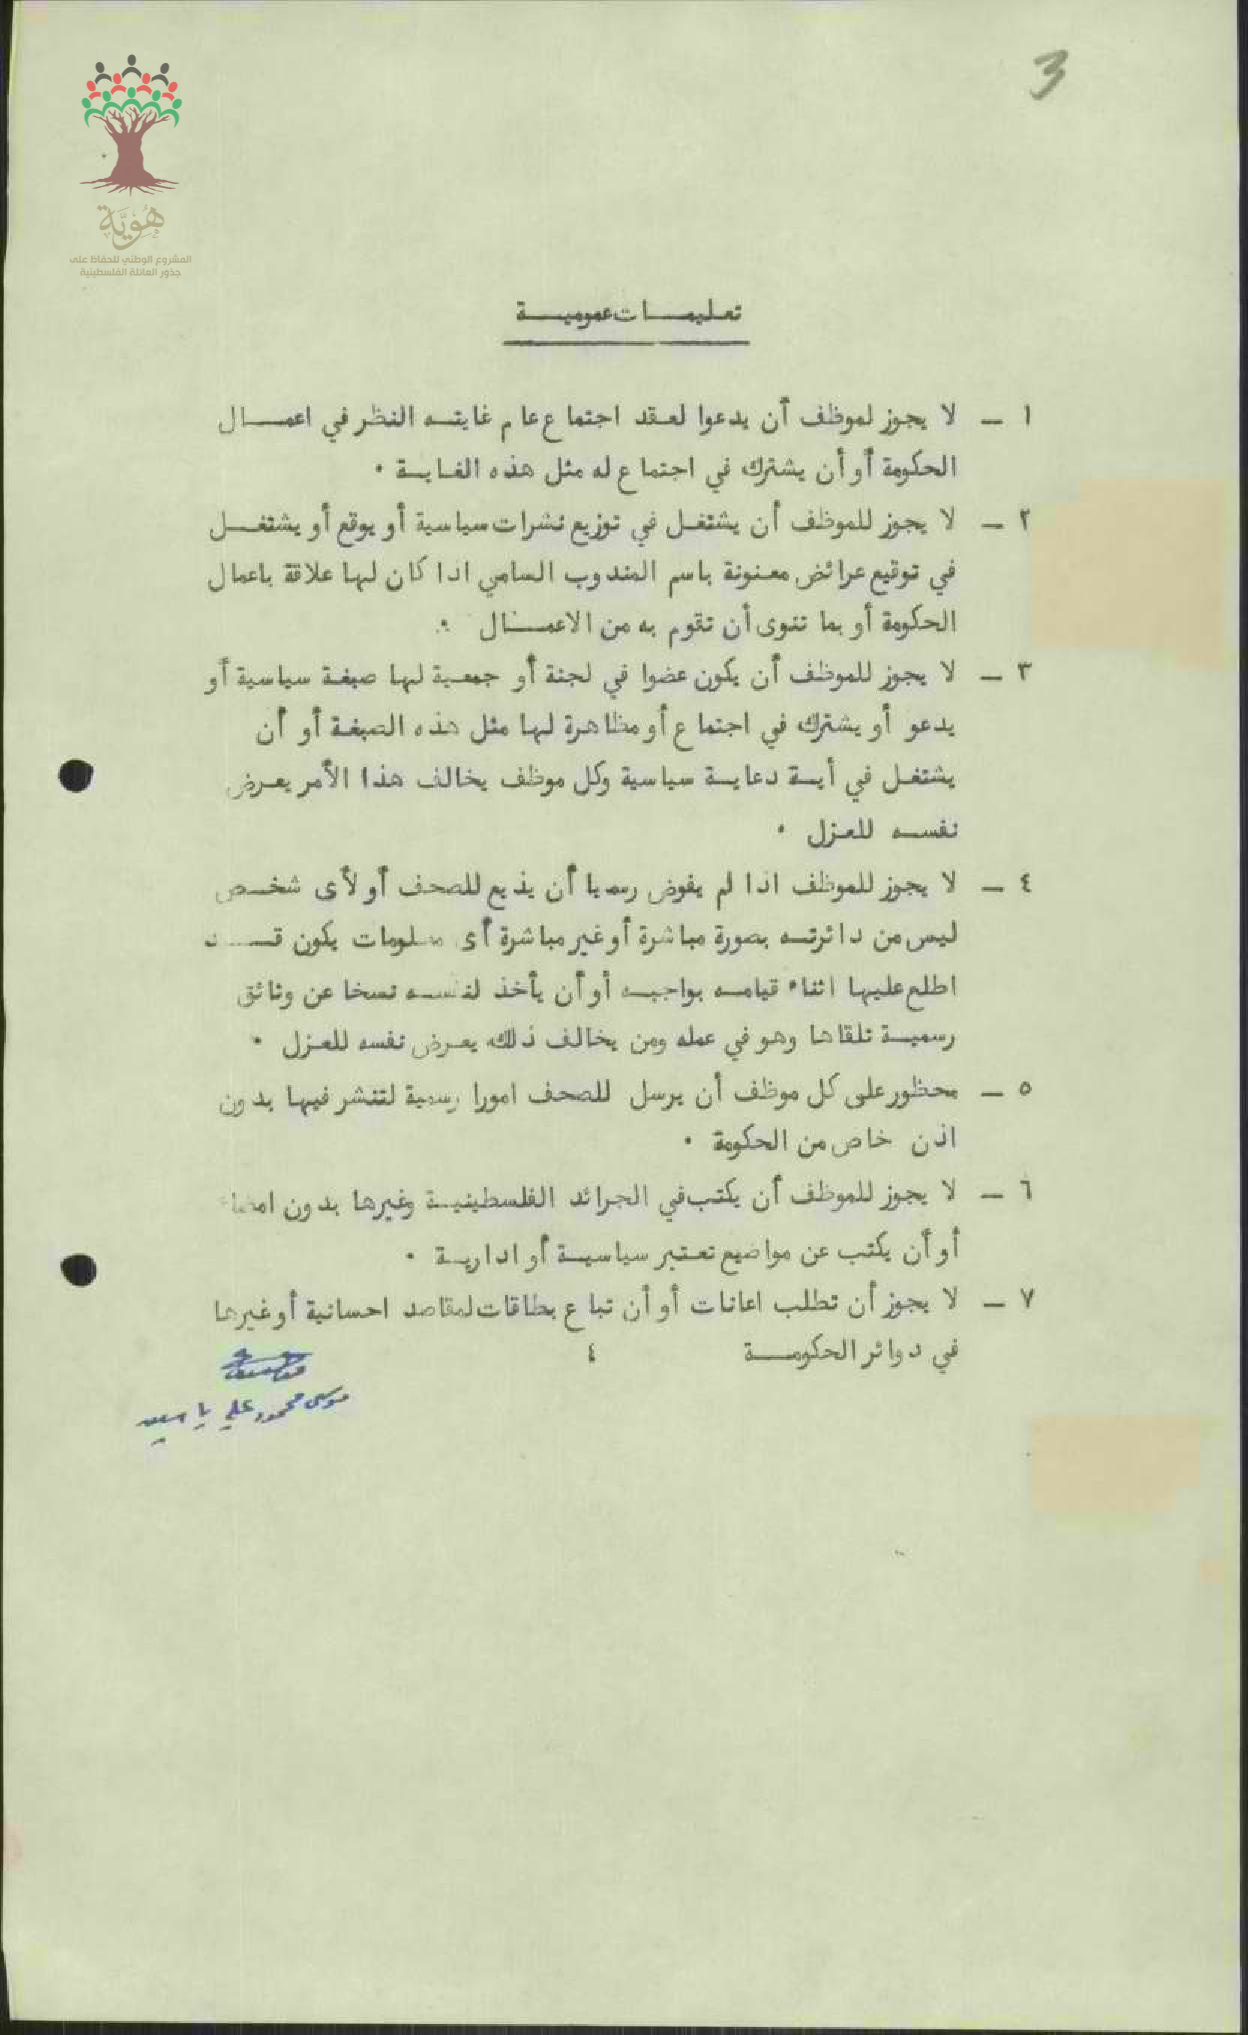 3
هُوِيَّة
المشروع الوطني للحفاظ على
جذور العائلة الفلسطينية
تعليمـــات عموميـــة
١ ــ لا يجوز لموظف أن يدعوا لعقد اجتماع عام غايتـه النظر في اعمـــال
الحكومة أو أن يشترك في اجتماع له مثل هذه الغايـة ٠
٢ ــ لا يجوز للموظف أن يشتغـل في توزيع نشرات سياسية أو يوقع أو يشتغــل
في توقيع عرائض معنونة باسم المندوب السامي اذا كان لها علاقة باعمال
الحكومة أو بما تنوى أن تقوم به من الاعمـــال ٠
٣ ــ لا يجوز للموظف أن يكون عضوا في لجنة أو جمعية لها صبغة سياسية أو
يدعو أو يشترك في اجتماع أو مظاهرة لها مثل هذه الصبغة أو أن
يشتغـل في أيـة دعايـة سياسية وكل موظف يخالف هذا الأمر يعـرض
نفسـه للعـزل ٠
٤ ــ لا يجوز للموظف اذا لم يفوض رسميا أن يذيع للصحف أو لأى شخــص
ليس من دائرتـه بصورة مباشرة أو غير مباشرة أى معلومات يكون قــــد
اطلع عليها اثناء قيامـه بواجبـه أو أن يأخذ لنفسـه نسخا عن وثائق
رسميـة تلقاها وهو في عمله ومن يخالف ذلك يعـرض نفسه للعـزل ٠
٥ ــ محظور على كل موظف أن يرسل للصحف امورا رسمية لتنشر فيها بدون
اذن خاص من الحكومة ٠
٦ ــ لا يجوز للموظف أن يكتب في الجرائد الفلسطينيـة وغيرها بدون امضاء
أو أن يكتب عن مواضيع تعتبر سياسيـة أو اداريـة ٠
٧ ــ لا يجوز أن تطلب اعانات أو أن تباع بطاقات لمقاصد احسانية أو غيرها
في دوائر الحكومـــة ٤
موسى محمود علي ياسين